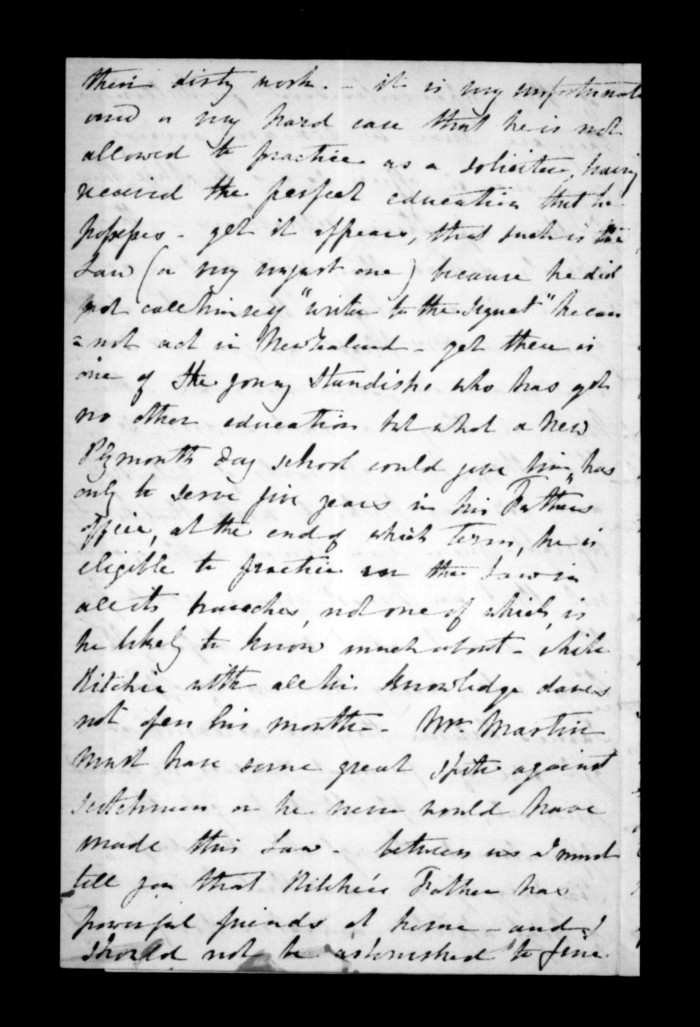 their dirty work. - it is very unfortunate
and a very hard case that he is not
allowed to practice as a solicitor, having
received the perfect education that he
possesses - yet it appears, that such is the
Law (a very unjust one) because he did
not call himself "writer to the signet" he can
not act in New Zealand - yet there is
one of the young Standishs who has got
no other education but what a New
Plymouth day school could give him, has
only to serve five years in his Fathers
office, at the end of which Term, he is
eligible to practice in the Law in
all its branches, not one of which, is
he likely to know much about - while
Ritchie with all his knowledge dares
not open his mouth - Mr Martin
must have some great spite against
Scotchmen or he never would have
made this Law - between us I must
tell you that Ritchie's Father has
powerful friends at home - and I
should not be astonished to find